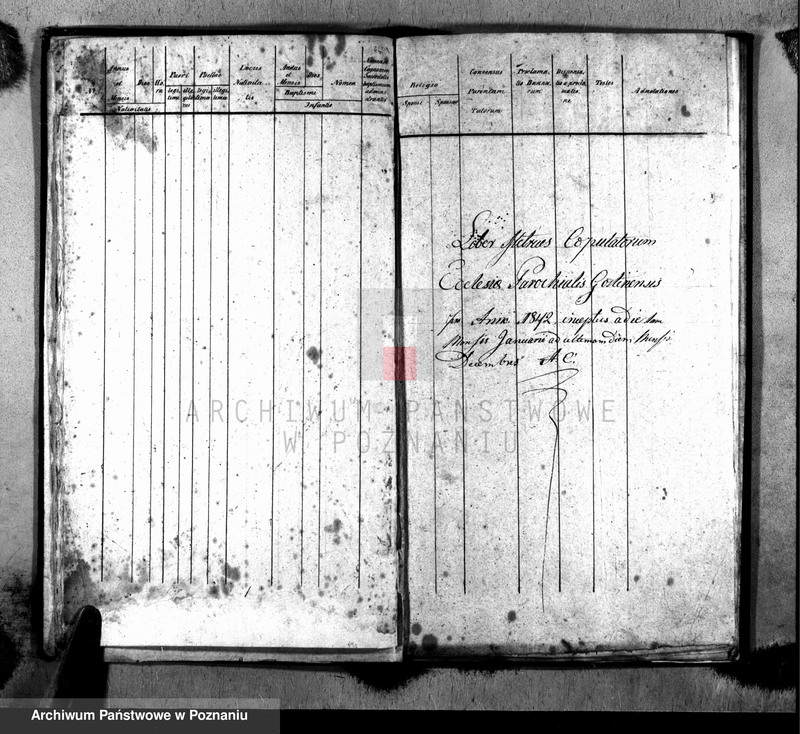 Annus et Mensis
Nativitatis
Dies
Hora
Pueri
legitimi
illegitimi
Puellae
legitimae
illegitimae
Locus Nativitatis
Annus et Mensis
Dies
Baptismi
Nomen
Infantis
Religio
Sponsi
Sponsae
Consensus Parentum Tutorum
Proclamatio Bannorum
Testes
Adnotationes
Liber Metrices Copulatorum
Ecclesiae Parochialis Gostinensis
pro Anno 1842 inceptus a die 1ma
Mensis Januarii ad ultimam diem Mensis
Decembris A. C.
ARCHIWUM PAŃSTWOWE
W POZNANIU
Archiwum Państwowe w Poznaniu